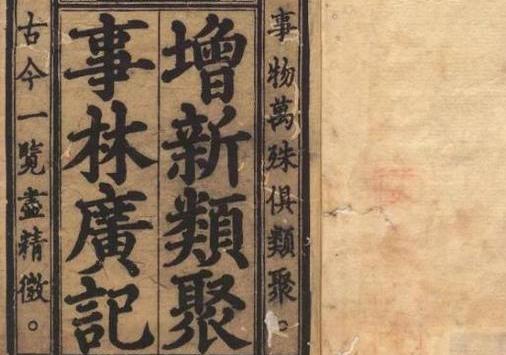 事物萬殊俱類聚。
增新類聚
事林廣記
古今一覽盡精微。